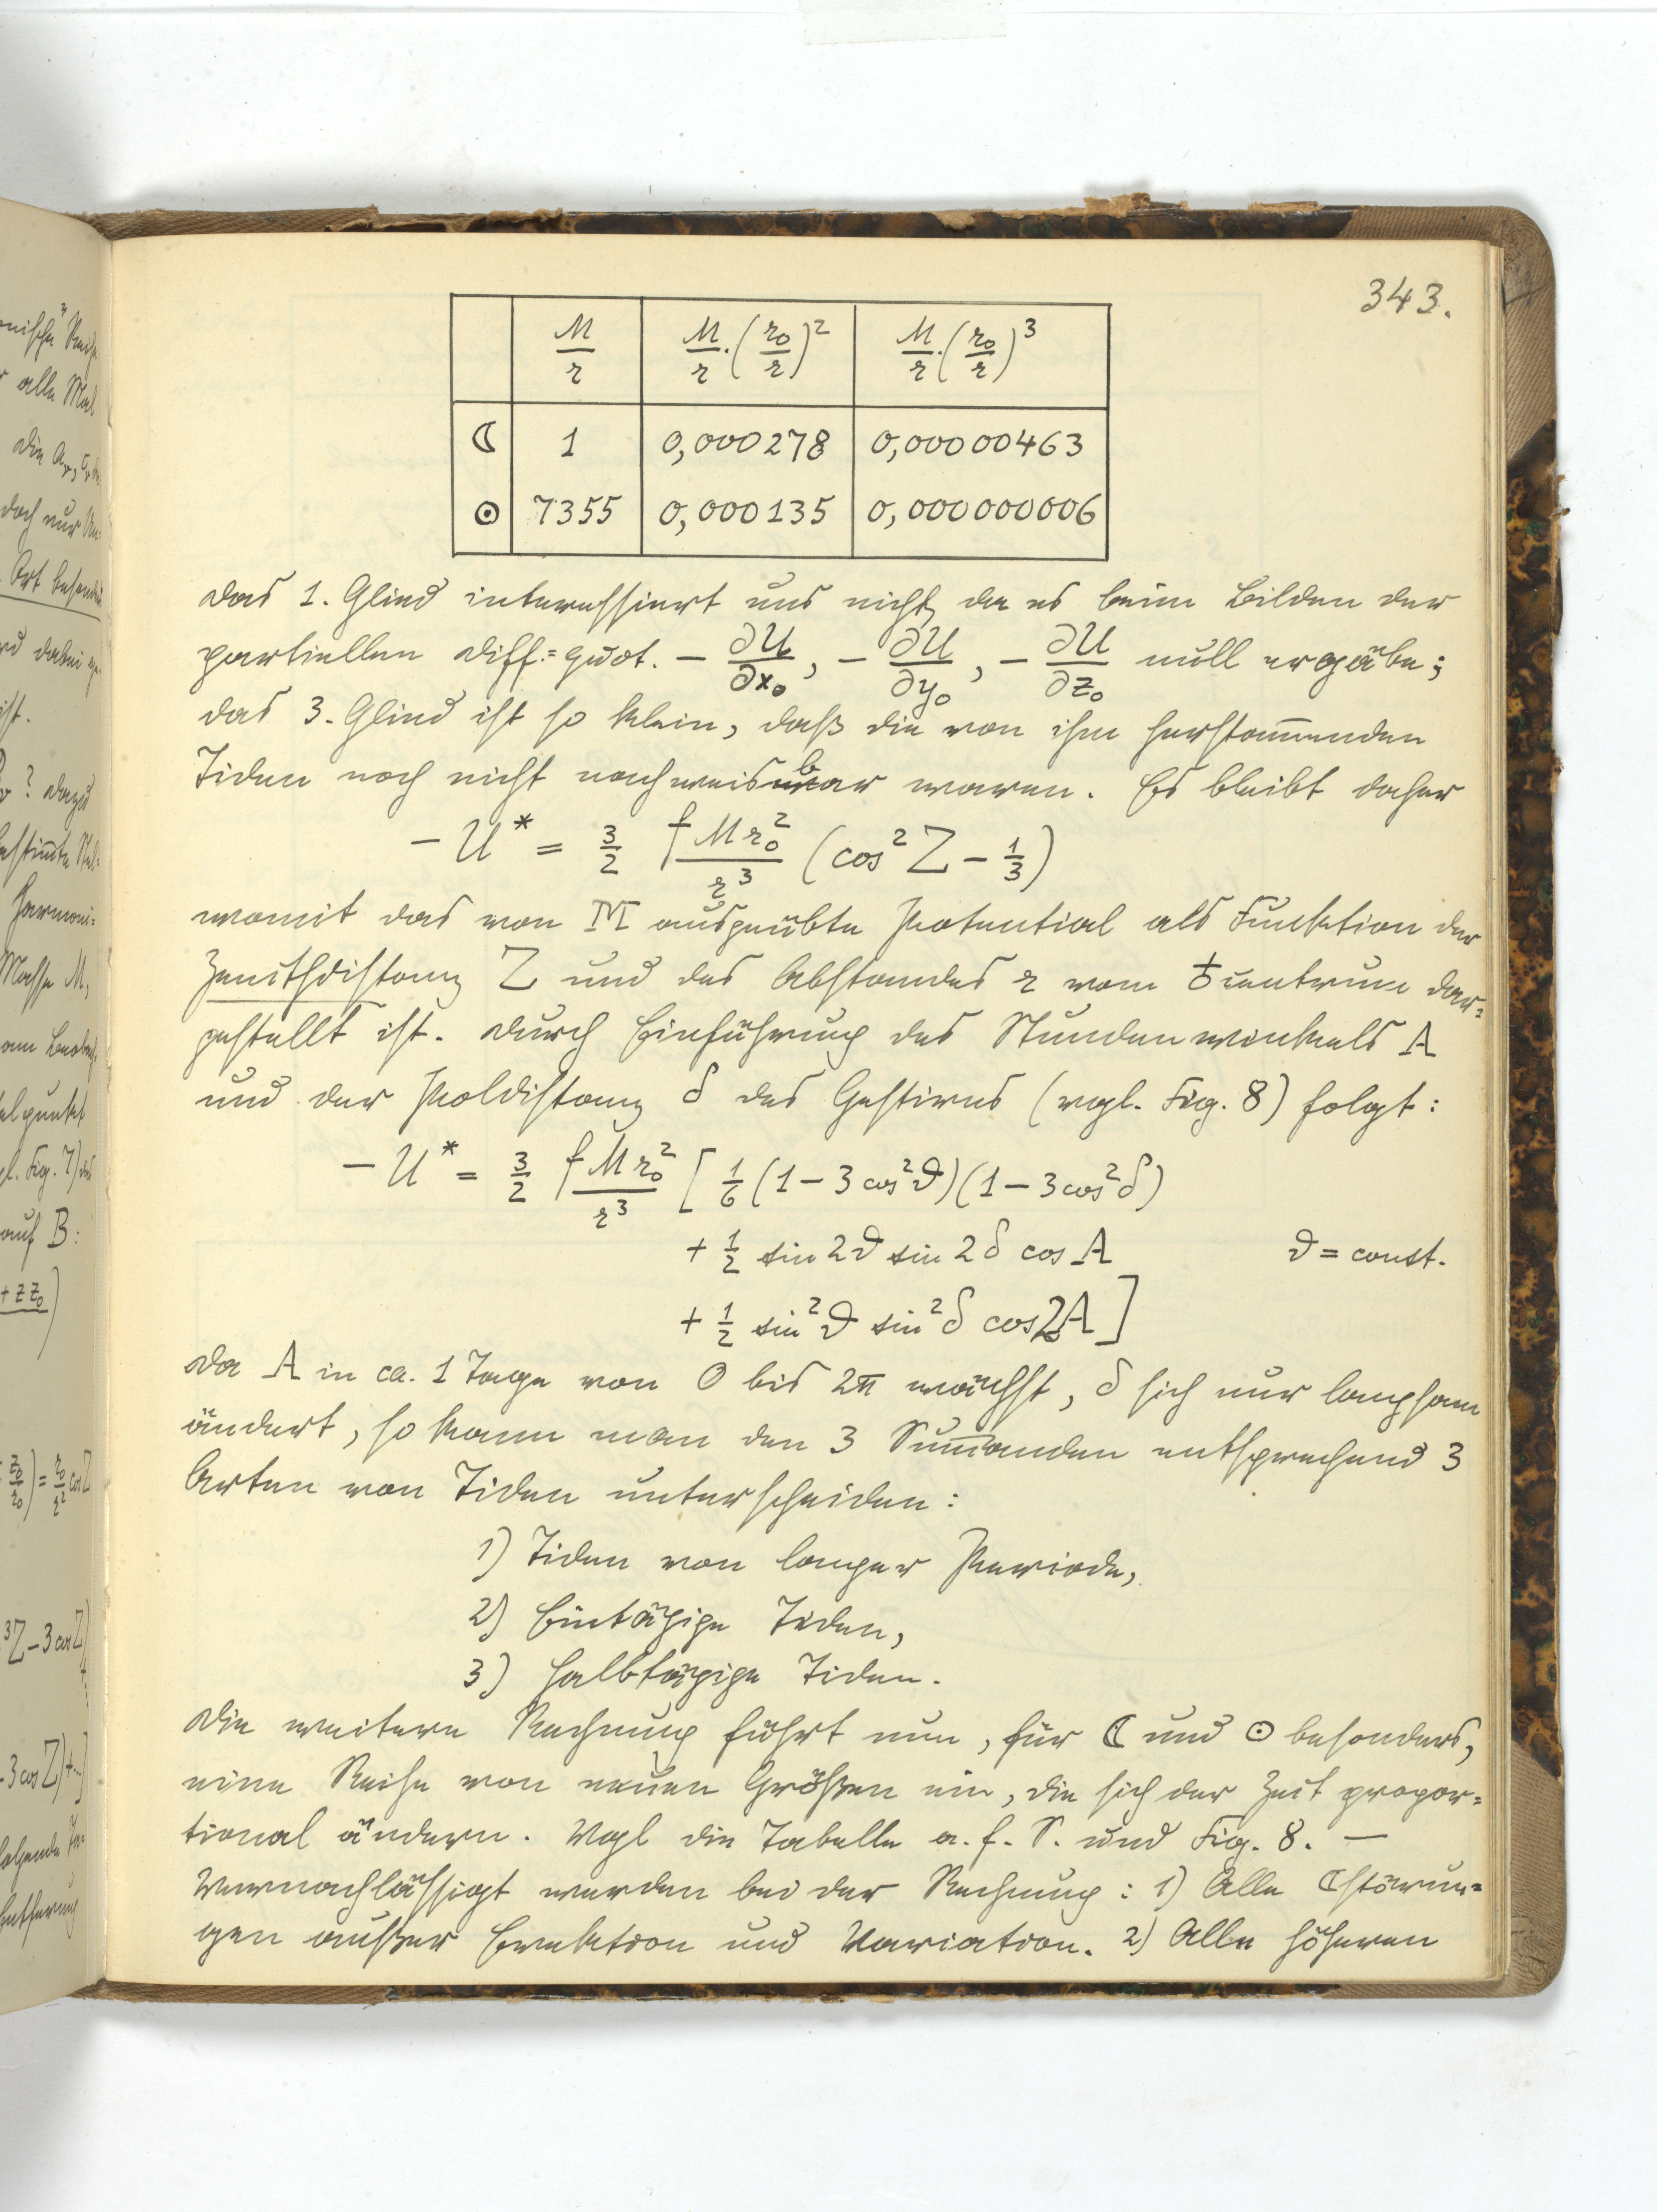 343.
M/r | M/r·(r₀/r)² | M/r·(r₀/r)³
☾ | 1 | 0,000278 | 0,00000463
☉ | 7355 | 0,000135 | 0,000000006
Das 1. Glied interessiert uns nicht, da es beim Bilden der
partiellen Diff.=quot. − ∂U/∂x₀, − ∂U/∂y₀, − ∂U/∂z₀ null ergäbe;
das 3. Glied ist so klein, daß die von ihm herstam̅enden
Tiden noch nicht nachweisbar waren. Es bleibt daher
− U* = 3/2 fMr₀²/r³ (cos² Z − 1/3)
womit das von M ausgeübte Potential als Funktion der
Zenithdistanz Z und des Abstandes r vom ♁centrum dar=
gestellt ist. Durch Einführung des Stundenwinkels A
und der Poldistanz δ des Gestirns (vgl. Fig. 8) folgt:
− U* = 3/2 fMr₀²/r³ [ 1/6 (1 − 3 cos²ϑ)(1 − 3 cos²δ)
+ 1/2 sin 2ϑ sin 2δ cos A ϑ = const.
+ 1/2 sin²ϑ sin²δ cos 2A ]
Da A in ca. 1 Tage von 0 bis 2π wächst, δ sich nur langsam
ändert, so kann man den 3 Sum̅anden entsprechend 3
Arten von Tiden unterscheiden:
1) Tiden von langer Periode,
2) Eintägige Tiden,
3) Halbtägige Tiden.
Die weitere Rechnung führt nun, für ☾ und ☉ besonders,
eine Reihe von neuen Größen ein, die sich der Zeit propor=
tional ändern. Vgl die Tabelle a. f. S. und Fig. 8. —
Vernachlässigt werden bei der Rechnung: 1) Alle ☾störun=
gen außer Evektion und Variation. 2) Alle höheren